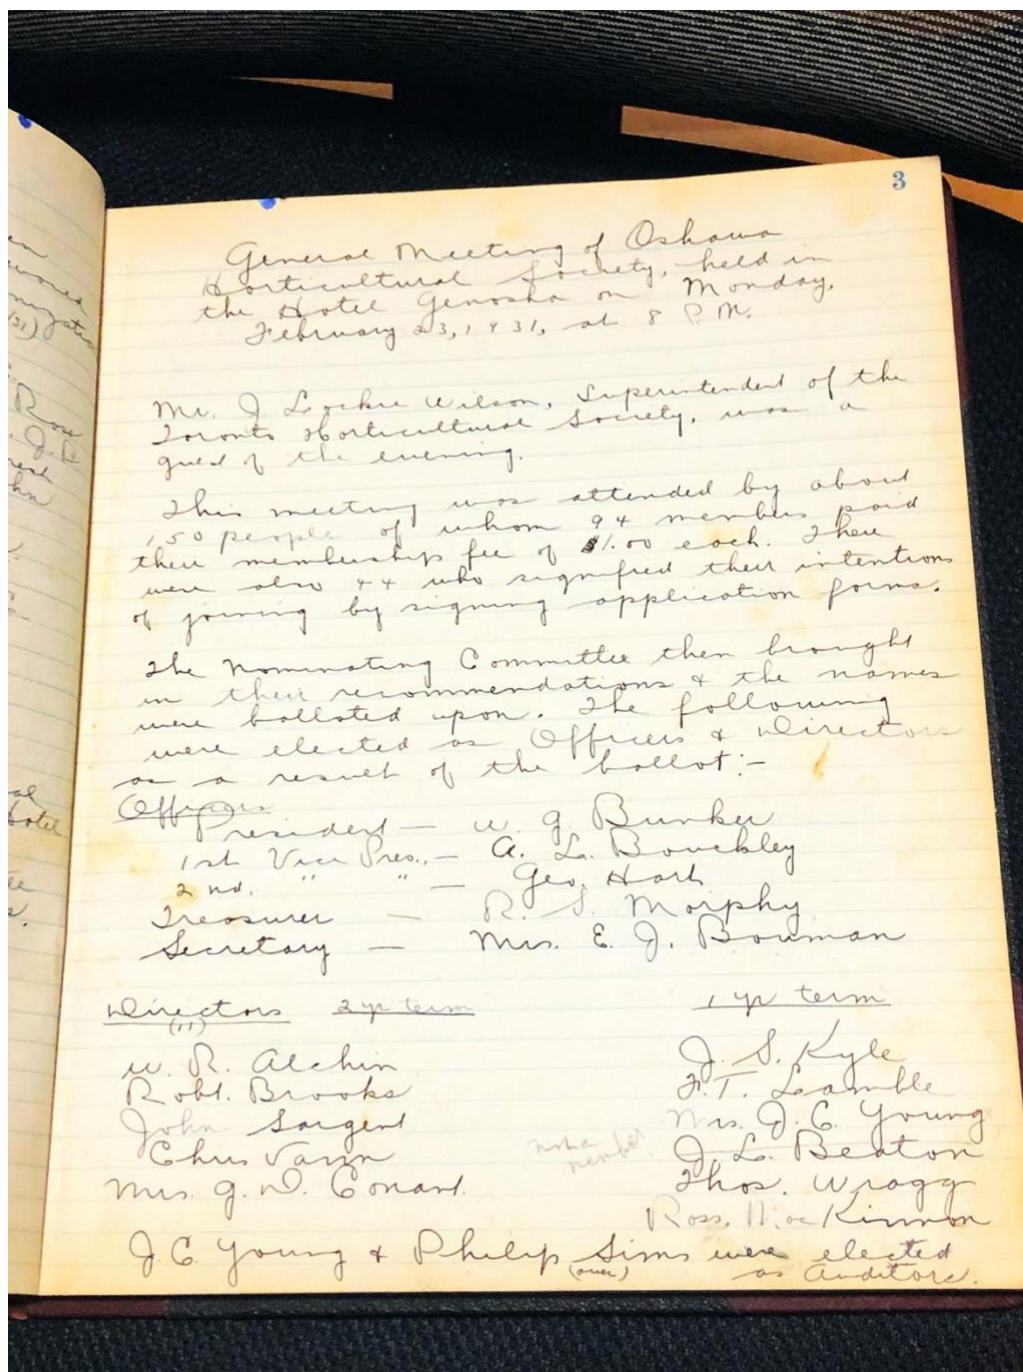 3
General Meeting of Oshawa
Horticultural Society, held in
the Hotel Genosha on Monday,
February 23, 1931, at 8 P.M.
Mr. J. Lockie Wilson, Superintendent of the
Toronto Horticultural Society, was a
guest of the evening.
This meeting was attended by about
150 people of whom 94 members paid
their membership fee of $1.00 each. There
were also 44 who signified their intentions
of joining by signing application forms.
The Nominating Committee then brought
in their recommendations & the names
were balloted upon. The following
were elected as Officers & Directors
as a result of the ballot:-
Officers
President — W. G. Bunker
1st Vice Pres., — A. L. Bouckley
2nd. " " — Geo. Hart
Treasurer — R. S. Morphy
Secretary — Mrs. E. J. Bowman
Directors 2 yr term 1 yr term
(11)
W. R. Alchin J. S. Kyle
Robt. Brooks F. T. Lamble
John Sargent Mrs. J. C. Young
Chris Vann not a member J. L. Beaton
Mrs. G. D. Conant. Thos. Wragg
Ross. MacKinnon
J. C. Young & Philip Sims were elected
(over) as Auditors.